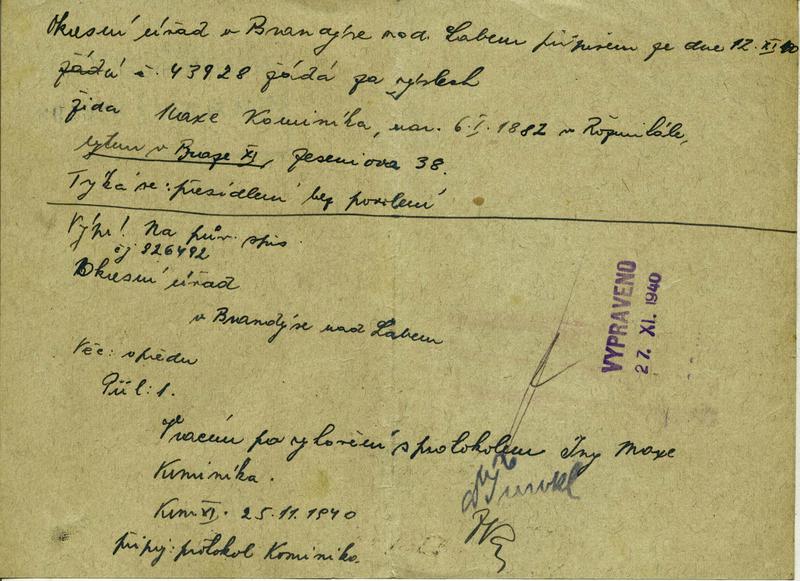 Okresní úřad v Brandýse nad Labem přípisem ze dne 12. XI 40
žádá č. 43928 žádá za výslech
žida Maxe Kominíka, nar. 6.I.1882 v
bytem v Praze XI, Jeseniova 38.
Týká se: přesídlení bez povolení
Výpr! Na pův. spis
čj 226492
Okresní úřad
v Brandýse nad Labem
Věc: vpředu
Příl: 1.
Vracím po vyhovění s protokolem Ing Maxe
Kominíka.
Kom XI. 25.11.1940
připoj: protokol Kominika.
VYPRAVENO
27. XI. 1940